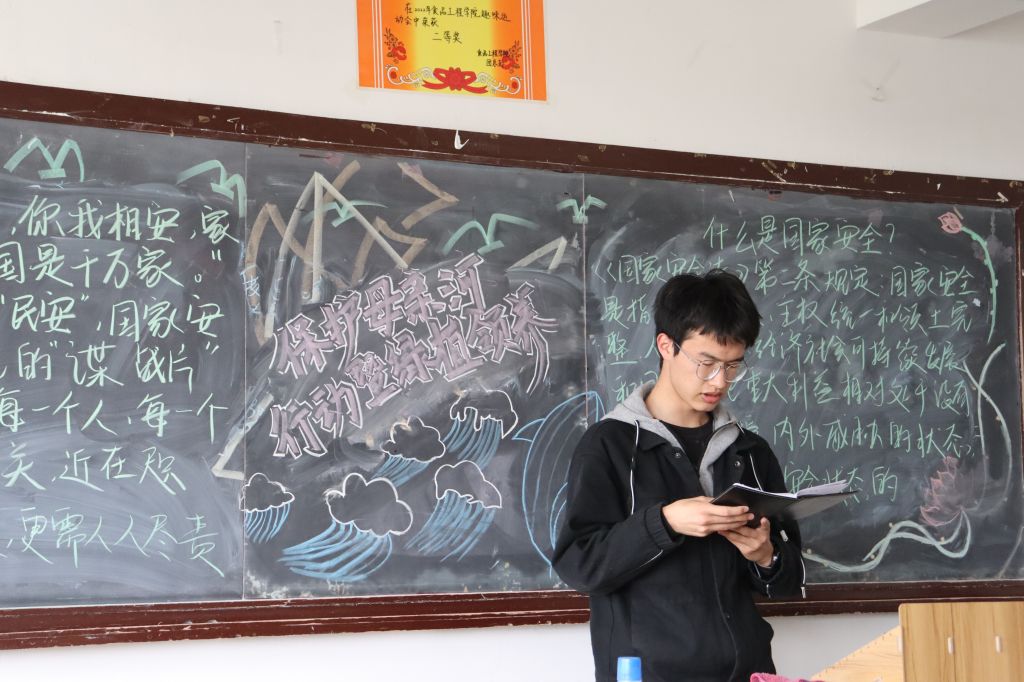 在2022年食品工程学院趣味运
动会中荣获
二等奖
食品工程学院
团总支
你我相安,家
国是十万家。”
“民安”,国家安
的“谍战片”
每一个人,每一个
关,近在咫
更需人人尽责
保护母亲河
行动
植领养
什么是国家安全?
《国家安全法》第二条规定:国家安全
是指 主权、统一和领土完
整、人 经济社会可持续发展
和国 重大利益相对处于没有
内外威胁的状态,
状态的